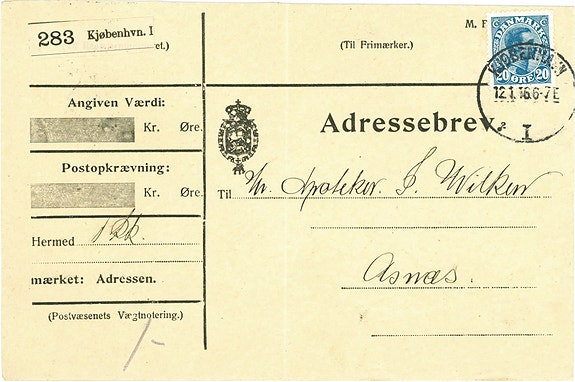 283 Kjøbenhvn. I
et.)
(Til Primærker.)
M. F
DANMARK
20 ØRE 20
KJØBENHAVN
12.1.16.6-7E
I
Angiven Værdi:
Kr. Øre.
Adressebrev.
Postopkrævning:
Kr. Øre.
Til Hr. Apoteker. J. Wilken
Hermed 1 Pk.
Asnæs.
mærket: Adressen.
(Postvæsenets Vægtnotering.)
1/-